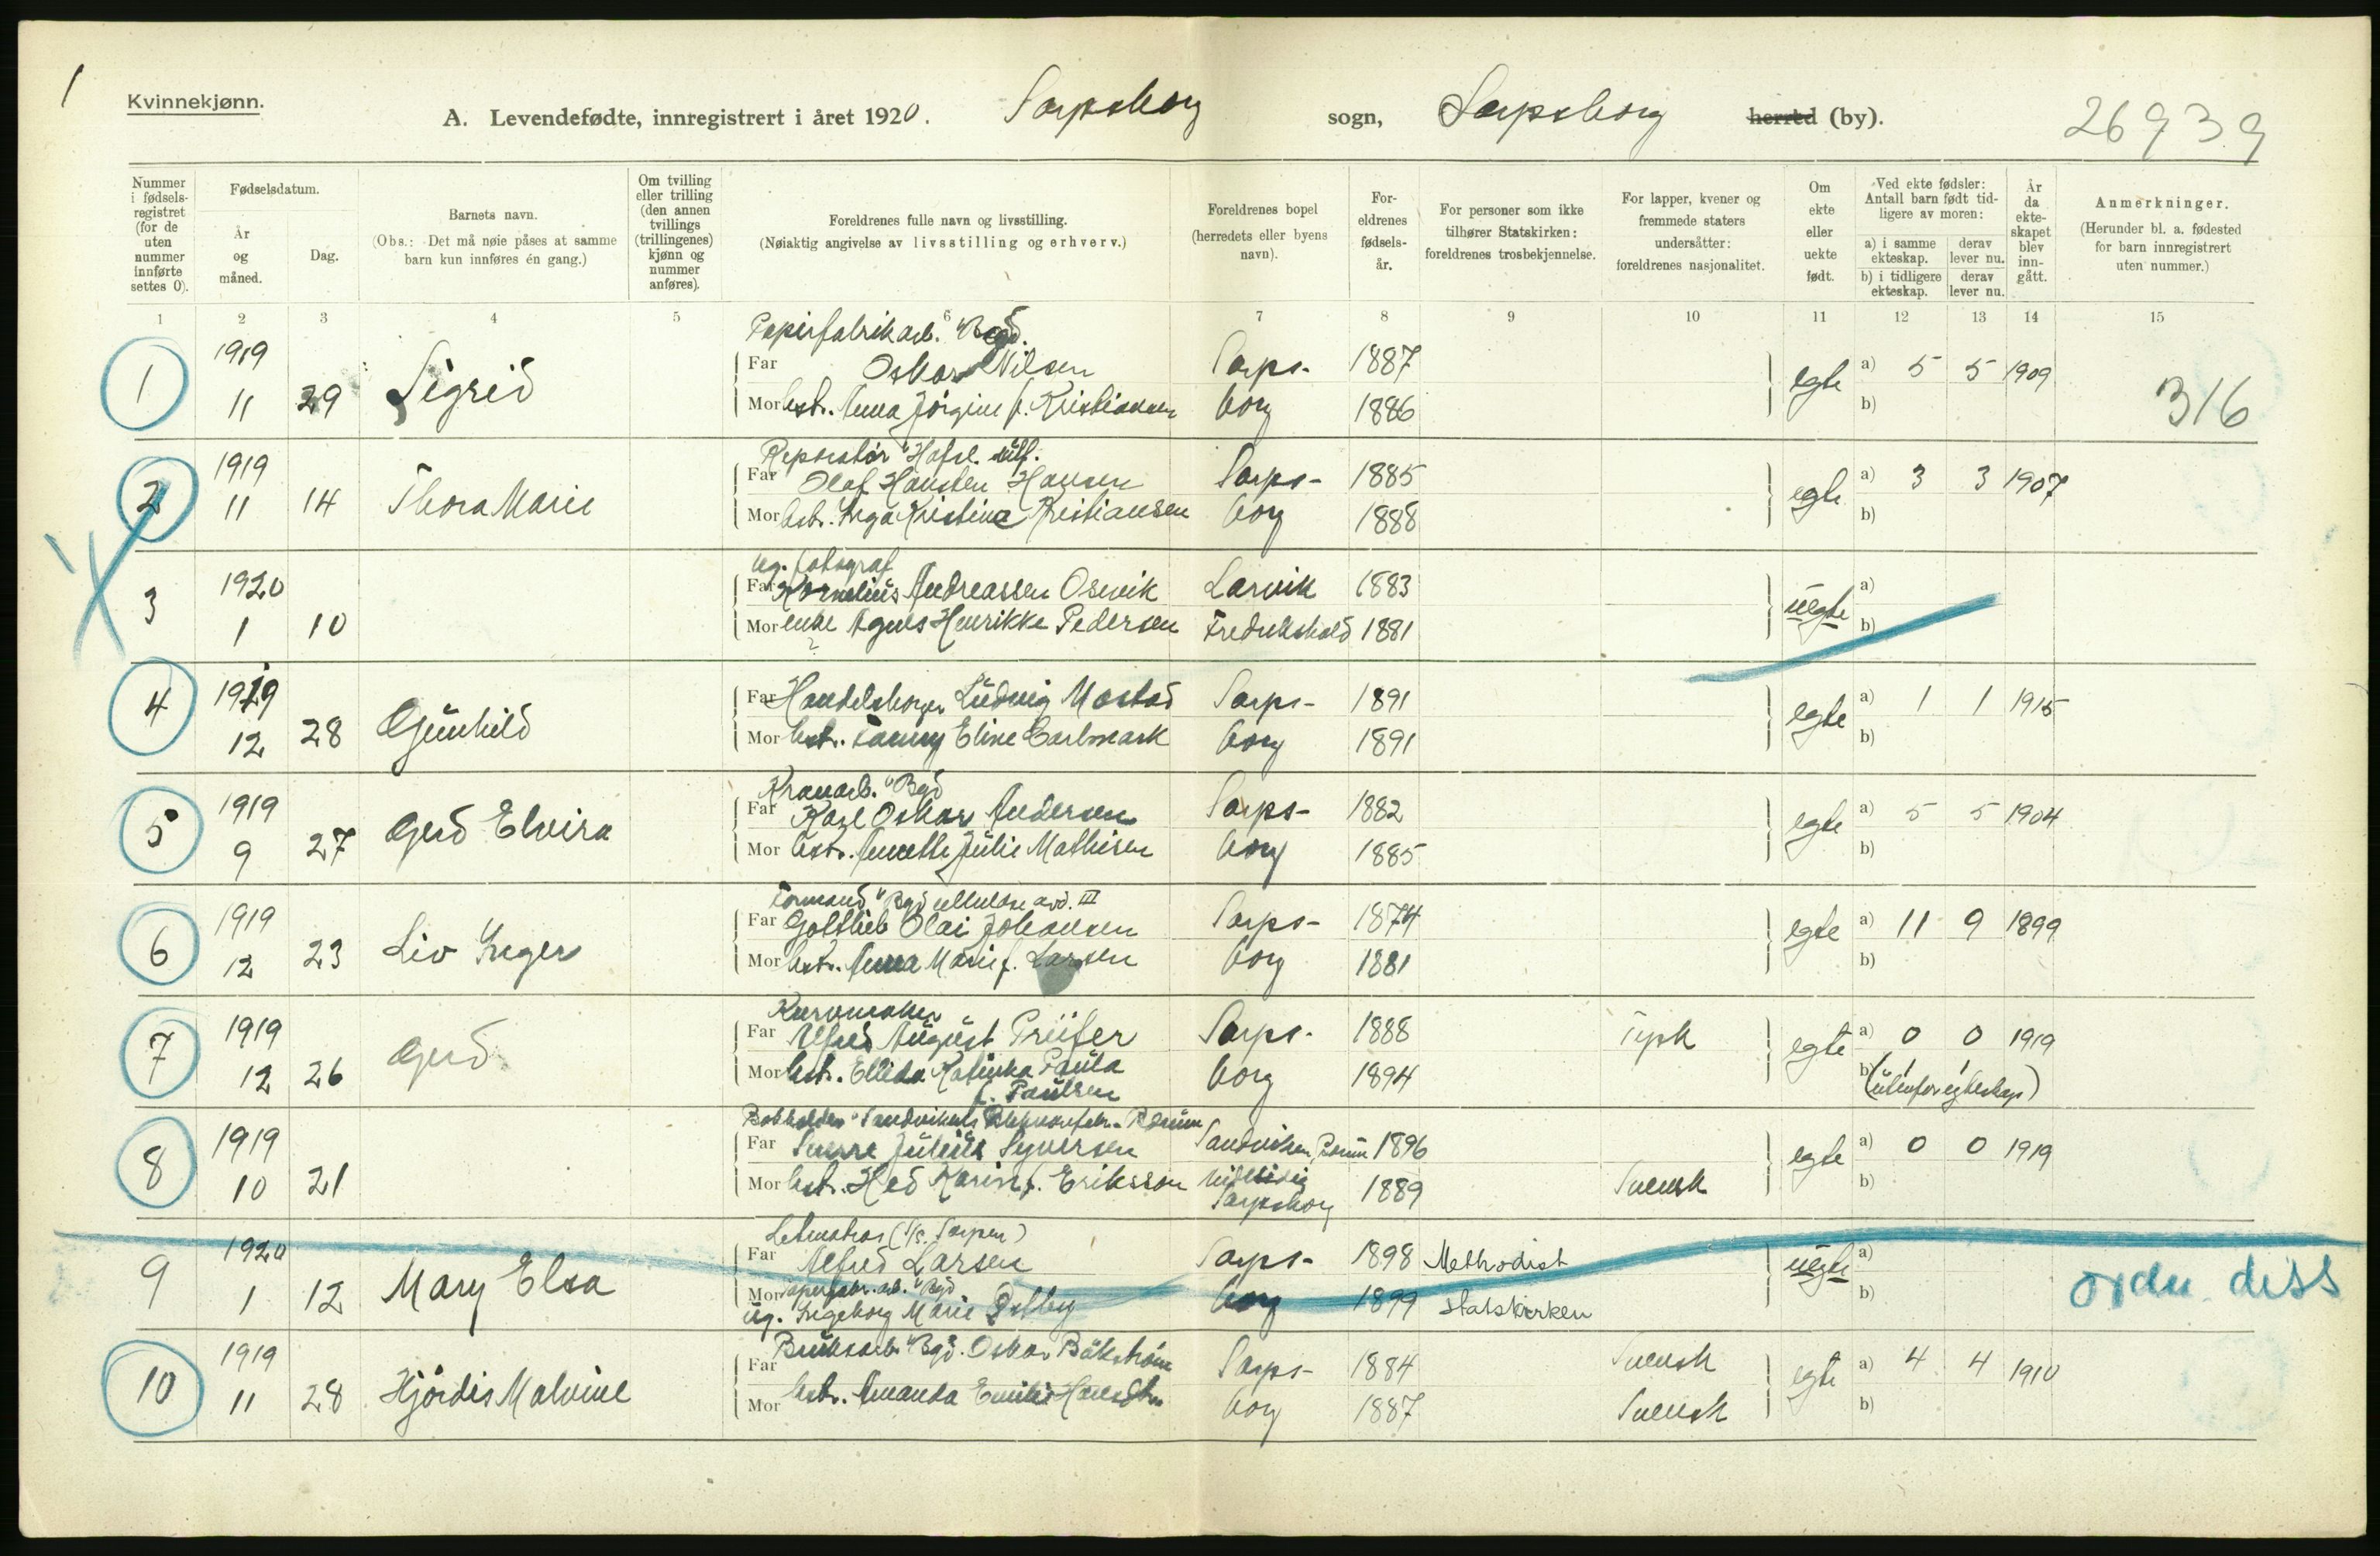 1
Kvinnekjønn.
A. Levendefødte, innregistrert i året 1920. Sarpsborg sogn, Sarpsborg herred (by).
26939
Nummer i fødsels- registret (for de uten nummer innførte settes 0).
Fødselsdatum.
År og måned.
Dag.
Barnets navn.
(Obs.: Det må nøie påses at samme barn kun innføres én gang.)
Om tvilling eller trilling (den annen tvillings (trillingenes) kjønn og nummer anføres).
Foreldrenes fulle navn og livsstilling.
(Nøiaktig angivelse av livsstilling og erhverv.)
Foreldrenes bopel (herredets eller byens navn).
For- eldrenes fødsels- år.
For personer som ikke tilhører Statskirken: foreldrenes trosbekjennelse.
For lapper, kvener og fremmede staters undersåtter: foreldrenes nasjonalitet.
Om ekte eller uekte født.
Ved ekte fødsler: Antall barn født tid- ligere av moren:
a) i samme ekteskap.
derav lever nu.
b) i tidligere ekteskap.
derav lever nu.
År da ekte- skapet blev inn- gått.
Anmerkninger.
(Herunder bl. a. fødested for barn innregistrert uten nummer.)
1 2 3 4 5 6 7 8 9 10 11 12 13 14 15
Papirfabrikarb. "Bgd.
1 1919 Far Oskar Nilsen Sarps- 1887 egte a) 5 5 1909
11 29 Sigrid Mor hst. Anna Jørgine f. Kristiansen borg 1886 b) 316
Reparatør "Hafsl.
2 1919 Far Olaf Hansten Hansen Sarps- 1885 egte a) 3 3 1907
11 14 Thora Marie Mor hst. Inga Kristine Kristiansen borg 1888 b)
ug. fotograf
3 1920 Far Kornelius Andreassen Osevik Larvik 1883 uegte a)
1 10 Mor enke Agnes Henrikke Pedersen Fredrikshald 1881 b)
?
4 1919 Far Handelsborger Ludvig Mostad Sarps- 1891 egte a) 1 1 1915
12 28 Gunhild Mor hst. Fanny Eline Carlmark borg 1891 b)
Kranarb. "Bgd
5 1919 Far Karl Oskar Andersen Sarps- 1882 egte a) 5 5 1904
9 27 Gerd Elvira Mor hst. Annette Julie Mathisen borg 1885 b)
Formand "Bgd cellulose avd. III
6 1919 Far Gottlieb Olai Johansen Sarps- 1874 egte a) 11 9 1899
12 23 Liv Inger Mor hst. Anna Marie f. Larsen borg 1881 b)
Kurvmaker
7 1919 Far Alfred August Prüfer Sarps- 1888 Tysk egte a) 0 0 1919
12 26 Gerd Mor hst. Ellida Katinka Paula borg 1894 b) 1 1
f. Paulsen (utenfor egteskap)
Bokholder "Sandvikens
8 1919 Far Sverre Julius Syversen Sandviken, Bærum 1896 egte a) 0 0 1919
10 21 Mor hst. Hed Karin f. Eriksson midlertidig Sarpsborg 1889 Svensk b)
Letmatros (S/S. Sarpen)
9 1920 Far Alfred Larsen Sarps- 1898 Methodist uegte a)
1 12 Mary Elsa Mor Papirfabr. arb. "Bgd borg 1899 Statskirken b)
ug. Ingeborg Marie
10 1919 Far Bruksarb. "Bgd. Oskar Bäkström Sarps- 1884 Svensk egte a) 4 4 1910
11 28 Hjørdis Malvine Mor hst. Amanda Emilie borg 1887 Svensk b)